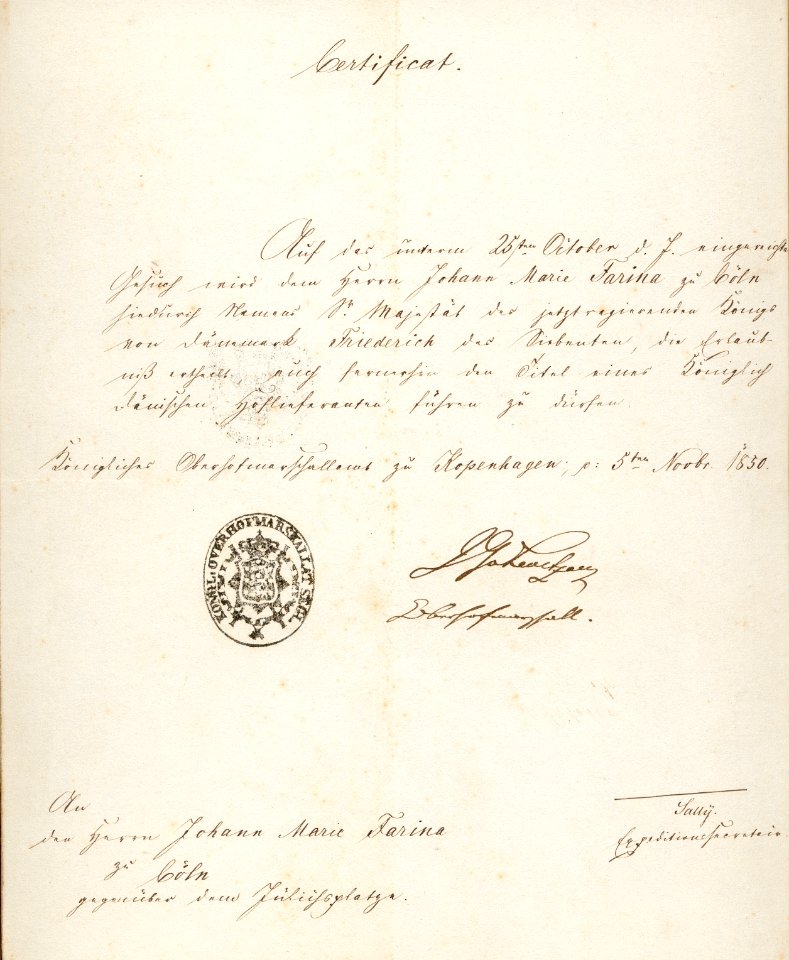 Certificat.
Auf das unterm 25sten October d. J. eingereichte
Gesuch wird dem Herrn Johann Marie Farina zu Cöln
hiedurch Namens Sr Majestät des jetztregierenden Königs
von Dänemark, Friederich des Siebenten, die Erlaub-
niß ertheilt, auch fernerhin den Titel eines Königlich
Dänischen Hoflieferanten führen zu dürfen.
Königliches Oberhofmarschallamt zu Kopenhagen, p: 5ten Novbr. 1850.
KONGL: OVERHOFMARSKALLATS
Oberhofmarschall.
An
den Herrn Johann Marie Farina
zu Cöln
gegenüber dem Jülichsplatze.
Sally.
Expeditionssecretair.